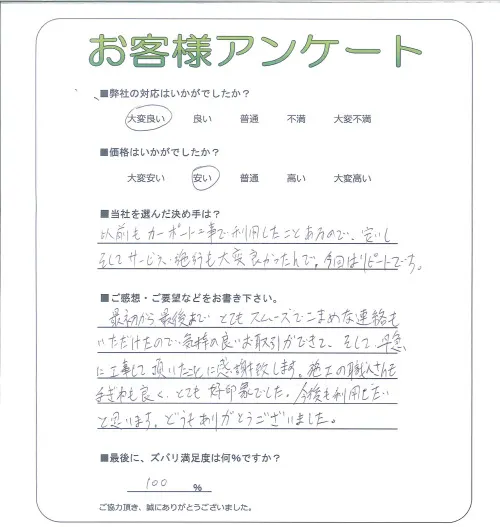 お客様アンケート
■弊社の対応はいかがでしたか？
大変良い 良い 普通 不満 大変不満
■価格はいかがでしたか？
大変安い 安い 普通 高い 大変高い
■当社を選んだ決め手は？
以前もカーポート工事で利用したことあるので、安いし
そしてサービス・施行も大変良かったんで。今回はリピートです。
■ご感想・ご要望などをお書き下さい。
最初から最後まで とてもスムーズでこまめな連絡も
いただけたので気持の良いお取引ができて、そして、早急
に工事して頂いたことに感謝致します。施工の職人さんも
手ぎわも良く、とても好印象でした。今後も利用したい
と思います。どうもありがとうございました。
■最後に、ズバリ満足度は何%ですか？
100 %
ご協力頂き、誠にありがとうございました。